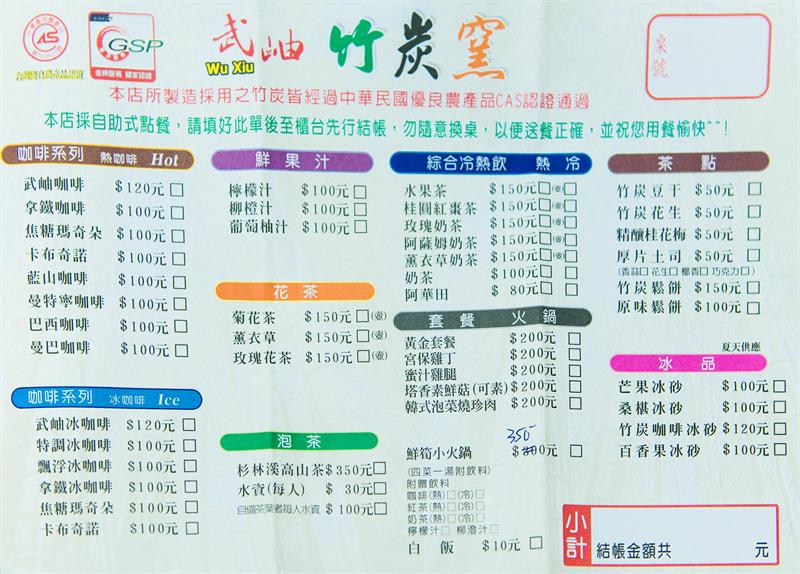 CAS
GSP
武岫 竹炭窯
Wu Xiu
桌號
本店所製造採用之竹炭皆經過中華民國優良農產品CAS認證通過
本店採自助式點餐，請填好此單後至櫃台先行結帳，勿隨意換桌，以便送餐正確，並祝您用餐愉快^^!
咖啡系列 熱咖啡 Hot
武岫咖啡 $120元□
拿鐵咖啡 $100元□
焦糖瑪奇朵 $100元□
卡布奇諾 $100元□
藍山咖啡 $100元□
曼特寧咖啡 $100元□
巴西咖啡 $100元□
曼巴咖啡 $100元□
咖啡系列 冰咖啡 Ice
武岫冰咖啡 $120元□
特調冰咖啡 $100元□
飄浮冰咖啡 $100元□
拿鐵冰咖啡 $100元□
焦糖瑪奇朵 $100元□
卡布奇諾 $100元□
鮮果汁
檸檬汁 $100元□
柳橙汁 $100元□
葡萄柚汁 $100元□
花茶
菊花茶 $150元□(壺)
薰衣草 $150元□(壺)
玫瑰花茶 $150元□(壺)
泡茶
杉林溪高山茶 $350元□
水資(每人) $ 30元□
自備茶葉者每人水資 $ 100元□
綜合冷熱飲 熱 冷
水果茶 $150元□(壺)□
桂圓紅棗茶 $150元□(壺)□
玫瑰奶茶 $150元□(壺)□
阿薩姆奶茶 $150元□(壺)□
薰衣草奶茶 $150元□(壺)□
奶茶 $100元□ □
阿華田 $ 80元□ □
套餐 火鍋
黃金套餐 $200元□
宮保雞丁 $200元□
蜜汁雞腿 $200元□
塔香素鮮菇(可素) $200元□
韓式泡菜燒珍肉 $200元□
350
鮮筍小火鍋 $ 00元□
(四菜一湯附飲料)
附贈飲料
咖啡(熱)□(冷)□
紅茶(熱)□(冷)□
奶茶(熱)□(冷)□
檸檬汁□ 柳澄汁□
白飯 $10元□
茶點
竹炭豆干 $50元□
竹炭花生 $50元□
精釀桂花梅 $50元□
厚片土司 $50元□
(香蒜□花生□椰香□巧克力□)
竹炭鬆餅 $150元□
原味鬆餅 $100元□
夏天供應
冰品
芒果冰砂 $100元□
桑椹冰砂 $100元□
竹炭咖啡冰砂 $120元□
百香果冰砂 $100元□
小計 結帳金額共 元